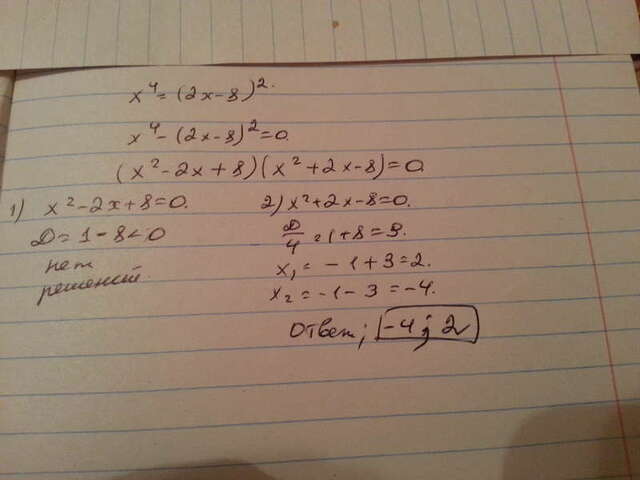 x⁴ = (2x-8)².
x⁴-(2x-8)²=0.
(x²-2x+8)(x²+2x-8)=0.
1) x²-2x+8=0.
D=1-8<0
нет
решений.
2) x²+2x-8=0.
D/4=1+8=9.
x₁=-1+3=2.
x₂=-1-3=-4.
Ответ; -4; 2